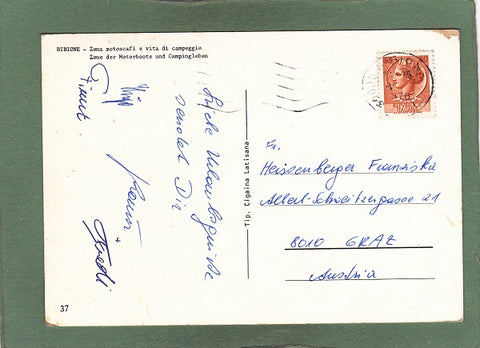 BIBIONE - Zona motoscafi e vita di campeggio
Zone der Moterboote und Campingleben
Liebe Urlaubsgrüsse
sendet Dir
Tip. Cigaina Latisana
Fr.
Heissenberger Franziska
Albert-Schweitzergasse 21
8010 GRAZ
Austria
37